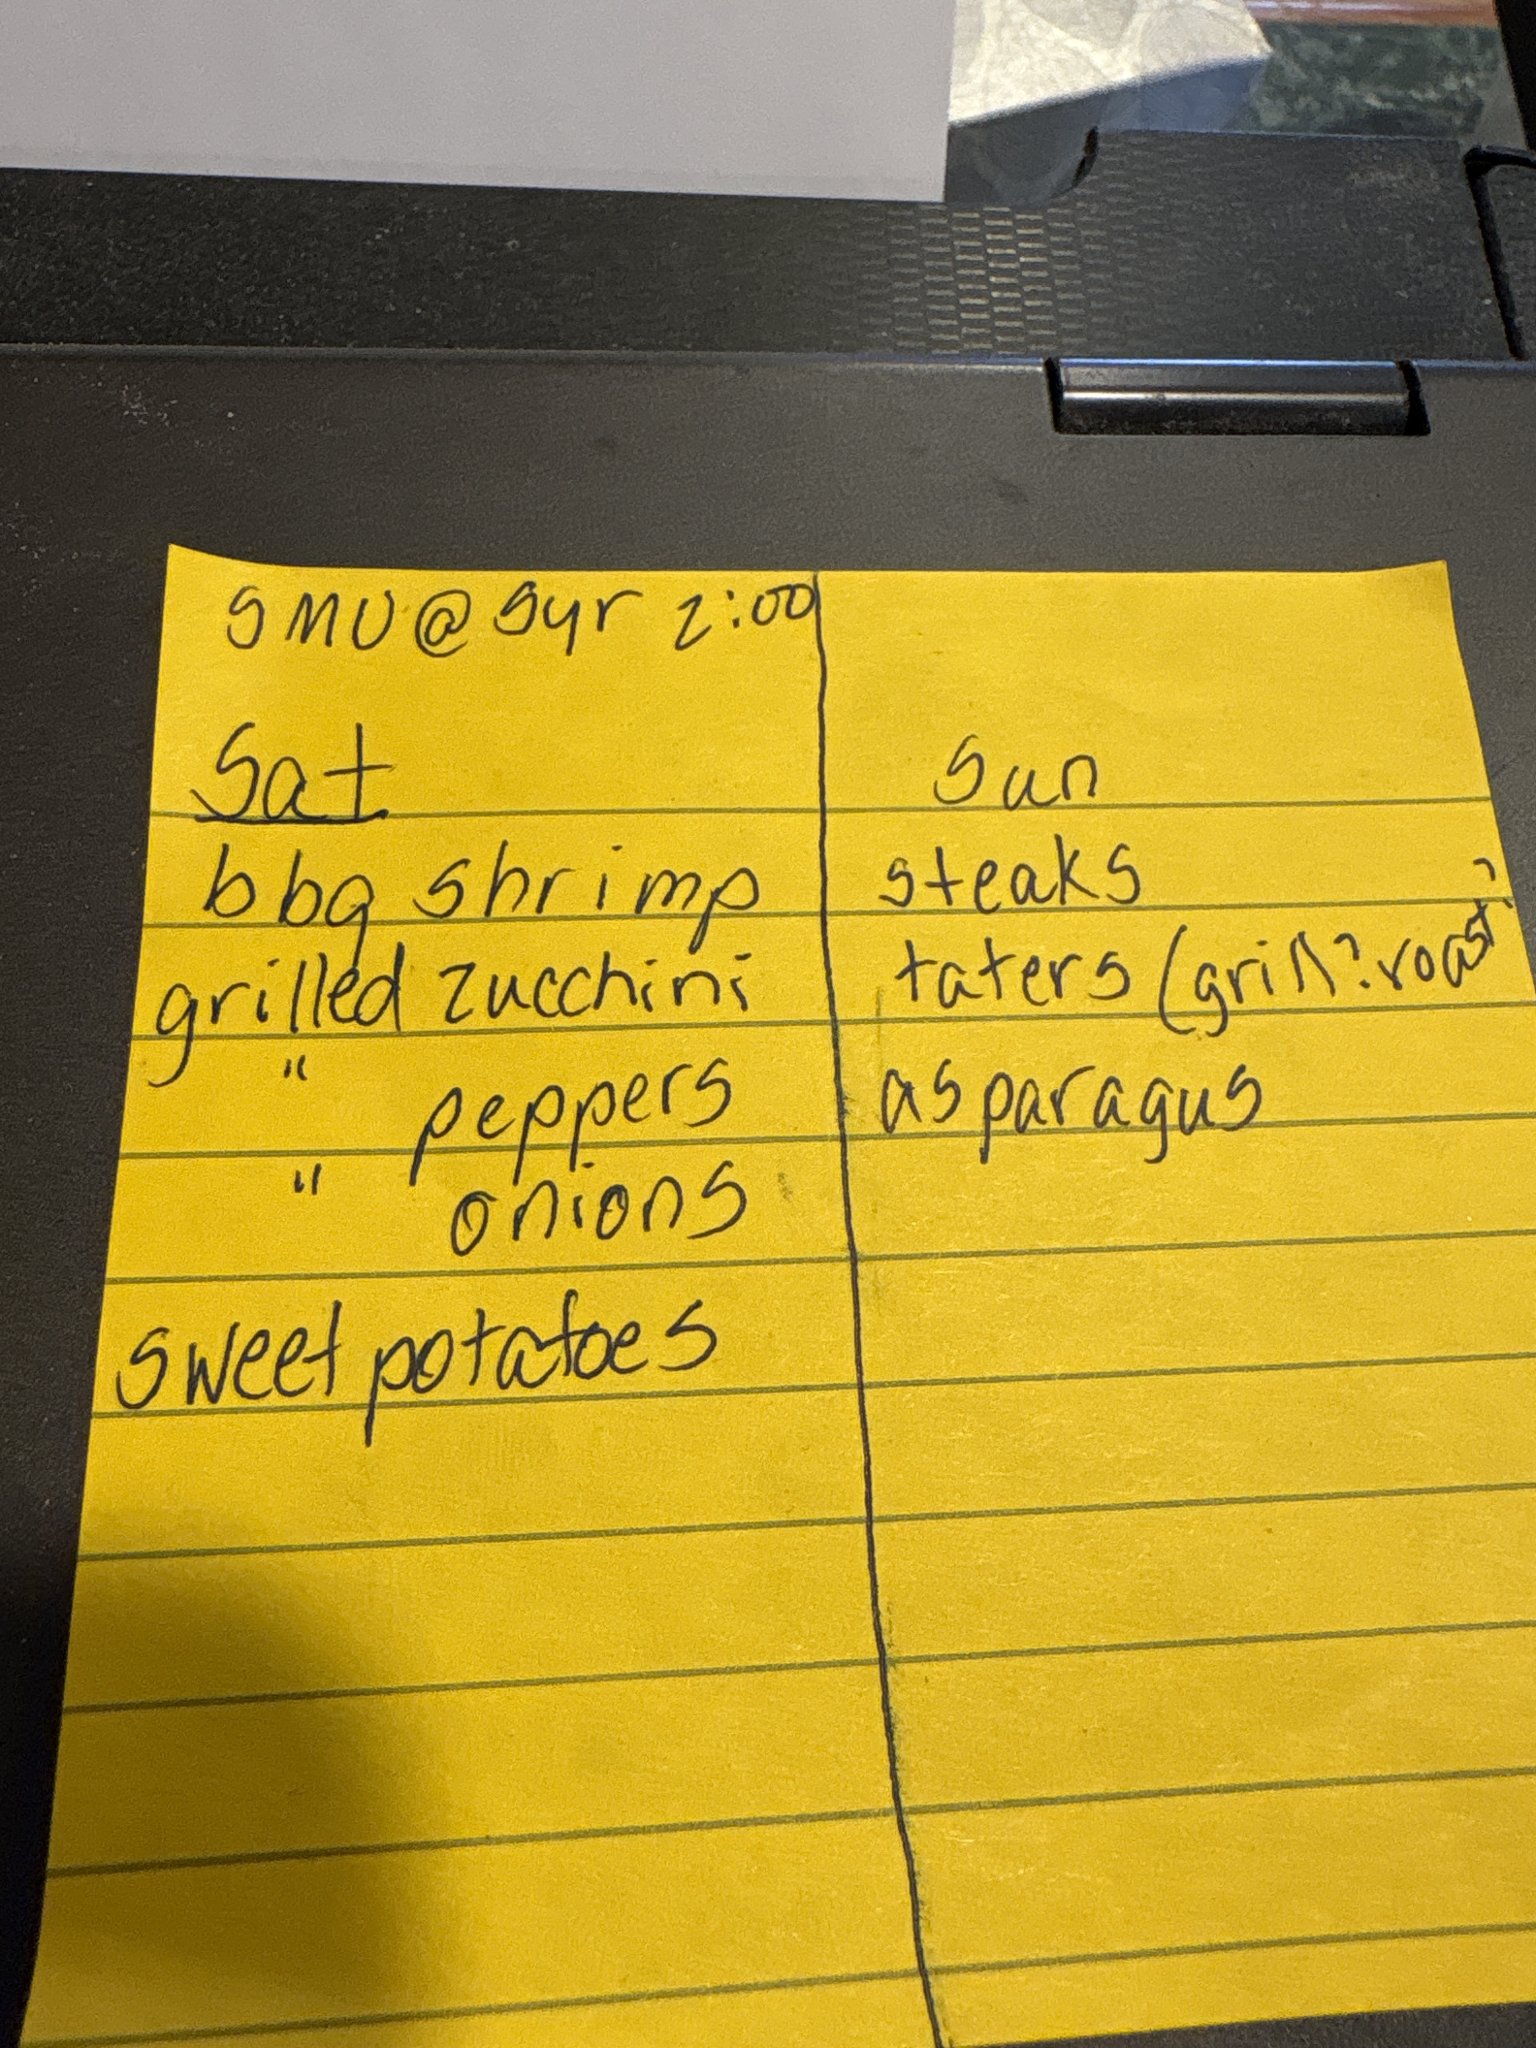 SMU @ Syr 2:00
Sat
bbq shrimp
grilled zucchini
" peppers
" onions
sweet potatoes
Sun
steaks
taters (grill? roast?
asparagus